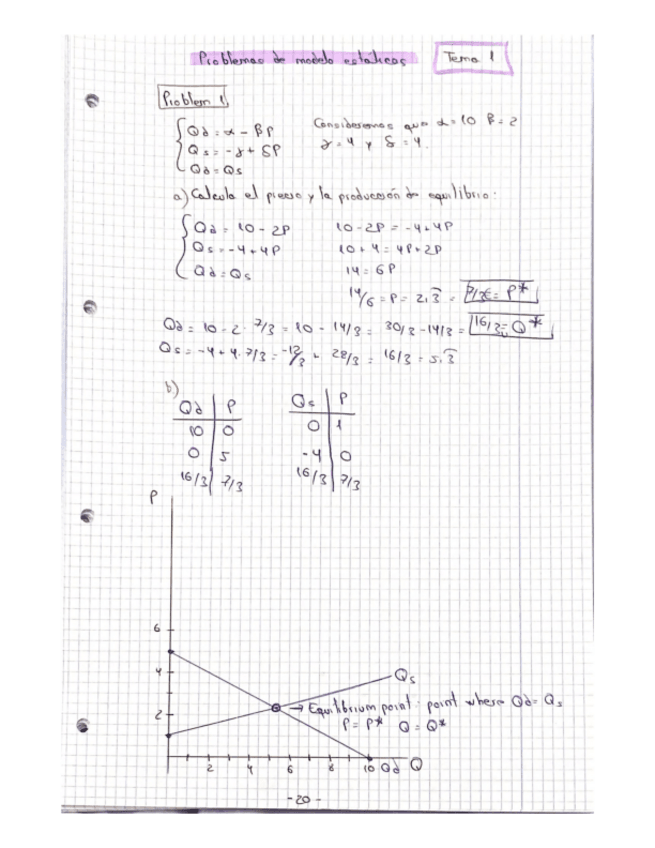 Problemas de modelo estáticos Tema 1
Problem 1
Qd = α - βP Consideremos que α=10 β=2
Qs = -γ + δP γ=4 y δ=4.
Qd = Qs
a) Calcula el precio y la producción de equilibrio:
Qd = 10 - 2P 10-2P = -4+4P
Qs = -4+4P 10+4 = 4P+2P
Qd = Qs 14 = 6P
14/6 = P = 2,3 = 7/3€ = P*
Qd = 10 - 2 · 7/3 = 10 - 14/3 = 30/3 - 14/3 = 16/3 = Q*
Qs = -4 + 4 · 7/3 = -12/3 + 28/3 = 16/3 = 5.3
b)
Qd P Qs P
10 0 0 1
0 5 -4 0
16/3 7/3 16/3 7/3
P
6
4 Qs
→ Equilibrium point: point where Qd = Qs
2 P = P* Q = Q*
2 4 6 8 10 Qd Q
-20-